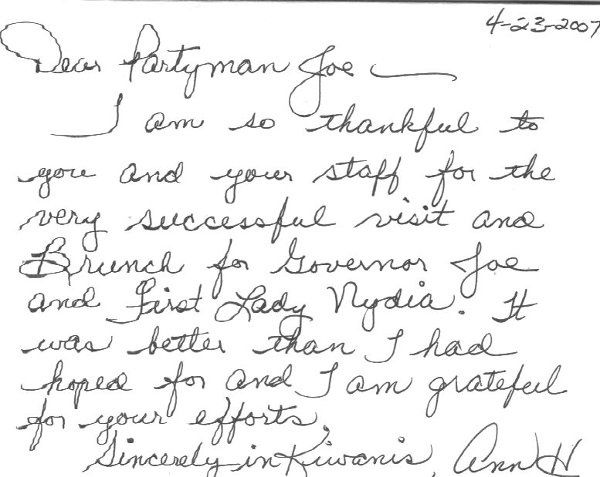 4-23-2007
Dear Partyman Joe —
I am so thankful to
you and your staff for the
very successful visit and
Brunch for Governor Joe
and First Lady Nydia. It
was better than I had
hoped for and I am grateful
for your efforts.
Sincerely in Kiwanis, Ann H